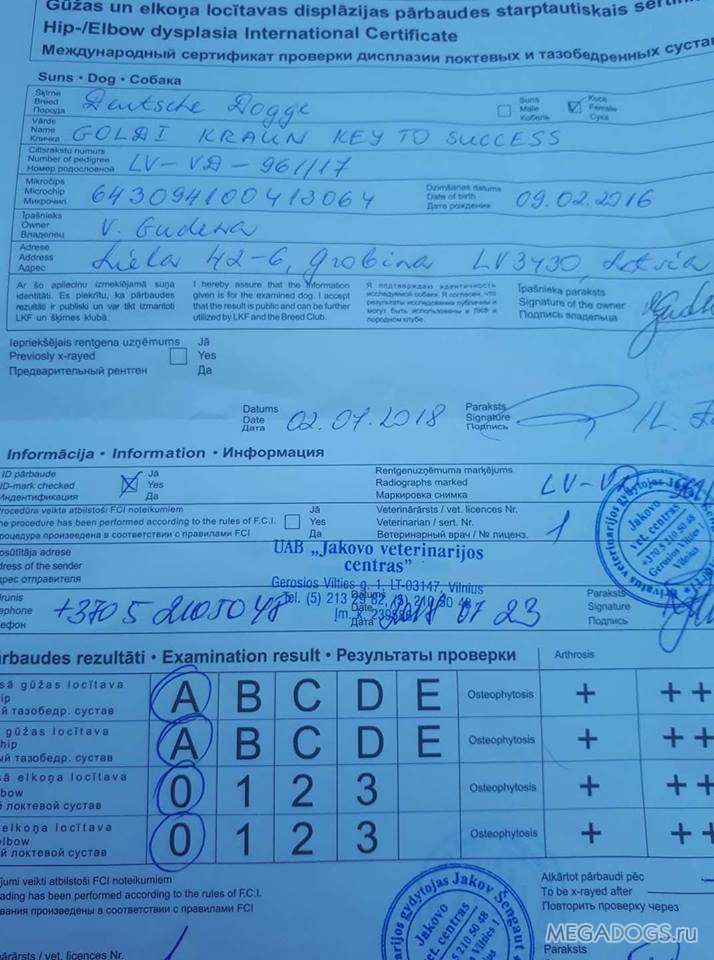 Gūžas un elkoņa locītavas displāzijas pārbaudes starptautiskais
Hip-/Elbow dysplasia International Certificate
Международный сертификат проверки дисплазии локтевых и тазобедренных
Suns • Dog • Собака
Šķirne
Breed
Порода
Deutsche Dogge
Suns
Male
Кобель
Kuce
Female
Сука
Vārds
Name
Кличка
GOLDI KRAUN KEY TO SUCCESS
Ciltsrakstu numurs
Number of pedigree
Номер родословной
LV-VD-961/17
Mikročips
Microchip
Микрочип
643094100413064
Dzimšanas datums
Date of birth
Дата рождения
09.02.2016
Īpašnieks
Owner
Владелец
V. Gudena
Adrese
Address
Адрес
Liela 42-6, Grobina LV3430 Latvia
Ar šo apliecinu izmeklējamā suņa
identitāti. Es piekrītu, ka pārbaudes
rezultāti ir publiski un var tikt izmantoti
LKF un šķirnes klubā.
I hereby assure that the information
given is for the examined dog. I accept
that the result is public and can be further
utilized by LKF and the Breed Club.
Я подтверждаю идентичность
исследуемой собаки. Я согласен, что
результаты исследования публичны и
могут быть использованы в ЛКФ и
породном клубе.
Īpašnieka paraksts
Signature of the owner
Подпись владельца
Iepriekšējais rentgena uzņēmums
Previosly x-rayed
Предварительный рентген
Jā
Yes
Да
Datums
Date
Дата
02.07.2018
Paraksts
Signature
Подпись
Informācija • Information • Информация
ID pārbaude
ID-mark checked
Идентификация
Jā
Yes
Да
Rentgenuzņēmuma marķējums
Radiographs marked
Маркировка снимка
Procedūra veikta atbilstoši FCI noteikumiem
The procedure has been performed according to the rules of F.C.I.
процедура произведена в соответствии с правилами FCI
Jā
Yes
Да
Veterinārārsts / vet. licences Nr.
Veterinarian / sert. Nr.
Ветеринарный врач / № лиценз.
1
nosūtītāja adrese
address of the sender
адрес отправителя
UAB „Jakovo veterinarijos
centras”
Gerosios Vilties g. 1, LT-03147, Vilnius
+370 5 2105048
Datums
Date
Дата
07 23
Paraksts
Signature
Подпись
Jakovo
vet. centras
+370 5 210 50 48
Gerosios Vilties 1
Vilnius
pārbaudes rezultāti • Examination result • Результаты проверки
Arthrosis
gūžas locītava
тазобедр. сустав
A B C D E Osteophytosis + ++
gūžas locītava
тазобедр. сустав
A B C D E Osteophytosis + ++
elkoņa locītava
локтевой сустав
0 1 2 3 Osteophytosis + ++
elkoņa locītava
elbow
локтевой сустав
0 1 2 3 Osteophytosis + ++
veikti atbilstoši FCI noteikumiem
reading has been performed according to the rules of F.C.I.
произведены в соответствии с правилами FCI
Atkārtot pārbaudi pēc
To be x-rayed after
Повторить проверку через
gydytojas Jakov Šengaut
Jakovo
vet. centras
vet. licences Nr.
Paraksts
MEGADOGS.ru